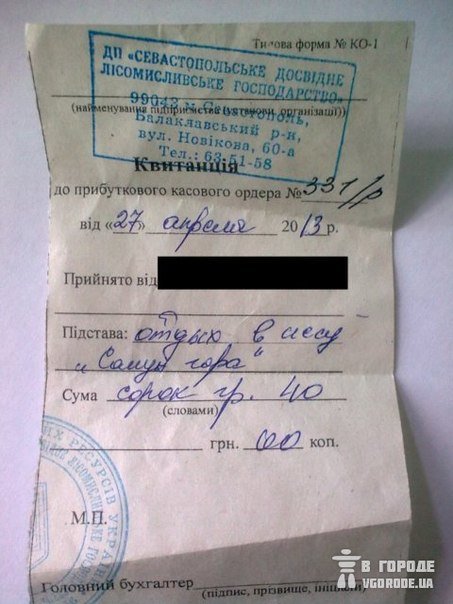 Типова форма № КО-1
ДП «СЕВАСТОПОЛЬСЬКЕ ДОСВІДНЕ
ЛІСОМИСЛИВСЬКЕ ГОСПОДАРСТВО»
99042 м. Севастополь,
(найменування підприємства (установи, організації))
Балаклавський р-н,
вул. Новікова, 60-а
Тел.: 63-51-58
Квитанція
до прибуткового касового ордера № 331/р
від «27» апреля 2013 р.
Прийнято від
Підстава: отдых в лесу
"Самун гора"
Сума сорок гр. 40
(словами)
грн. 00 коп.
М.П.
Головний бухгалтер
(підпис, прізвище, ініціали)
В ГОРОДЕ
VGORODE.UA